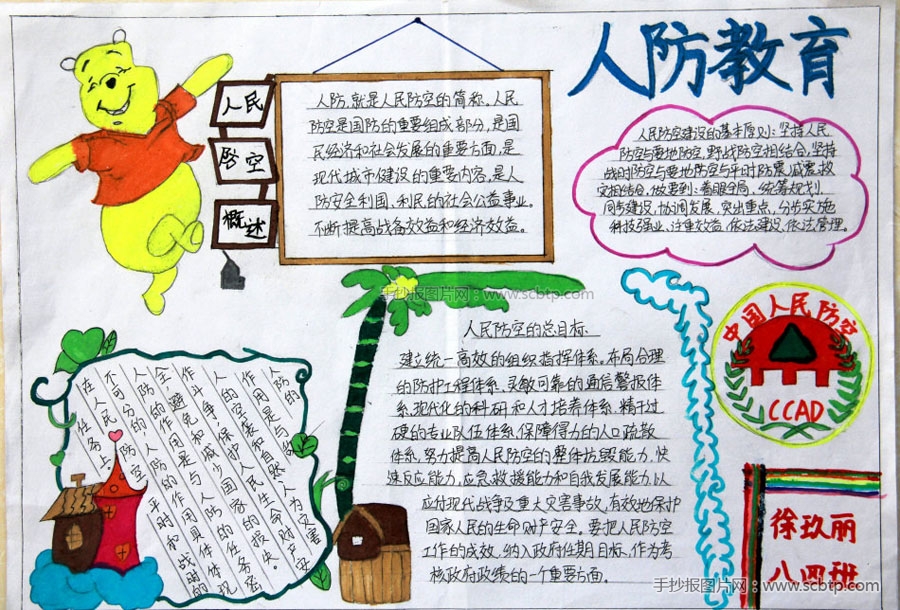 人防教育
人民
防空
概述
人防,就是人民防空的简称。人民
防空是国防的重要组成部分,是国
民经济和社会发展的重要方面,是
现代城市建设的重要内容,是人
防安全利国、利民的社会公益事业。
不断提高战备效益和经济效益。
人民防空建设的基本原则:坚持人民
防空与要地防空,野战防空相结合,坚持
战时防空与要地防空与平时防震、减震、救
灾相结合,做要到:着眼全局、统筹规划
同步建设,协调发展,突出重点,分步实施
科技强业,注重效益,依法建设,依法管理。
手抄报图片网:www.scbtp.com
中国人民防空
CCAD
人民防空的总目标
建立统一高效的组织指挥体系。布局合理
的防护工程体系、灵敏可靠的通信警报体
系,现代化的科研和人才培养体系,精干过
硬的专业队伍体系,保障得力的人口疏散
体系,努力提高人民防空的整体抗毁能力,快
速反应能力,应急救援能力和自我发展能力,以
应付现代战争及重大灾害事故,有效地保护
国家人民的生命财产安全。要把人民防空
工作的成效,纳入政府任期目标,作为考
核政府政绩的一个重要方面。
人防的
作用是与敌
人的空袭和自然人为灾害
作斗争,保护人民生命财产安
全,避免和减少国家的损失。
人防的作用是与人防的任务密
不可分的,人防的作用具体体现
在人民防空平时和战时的
任务上
徐玖丽
八四班
手抄报图片网:www.scbtp.com